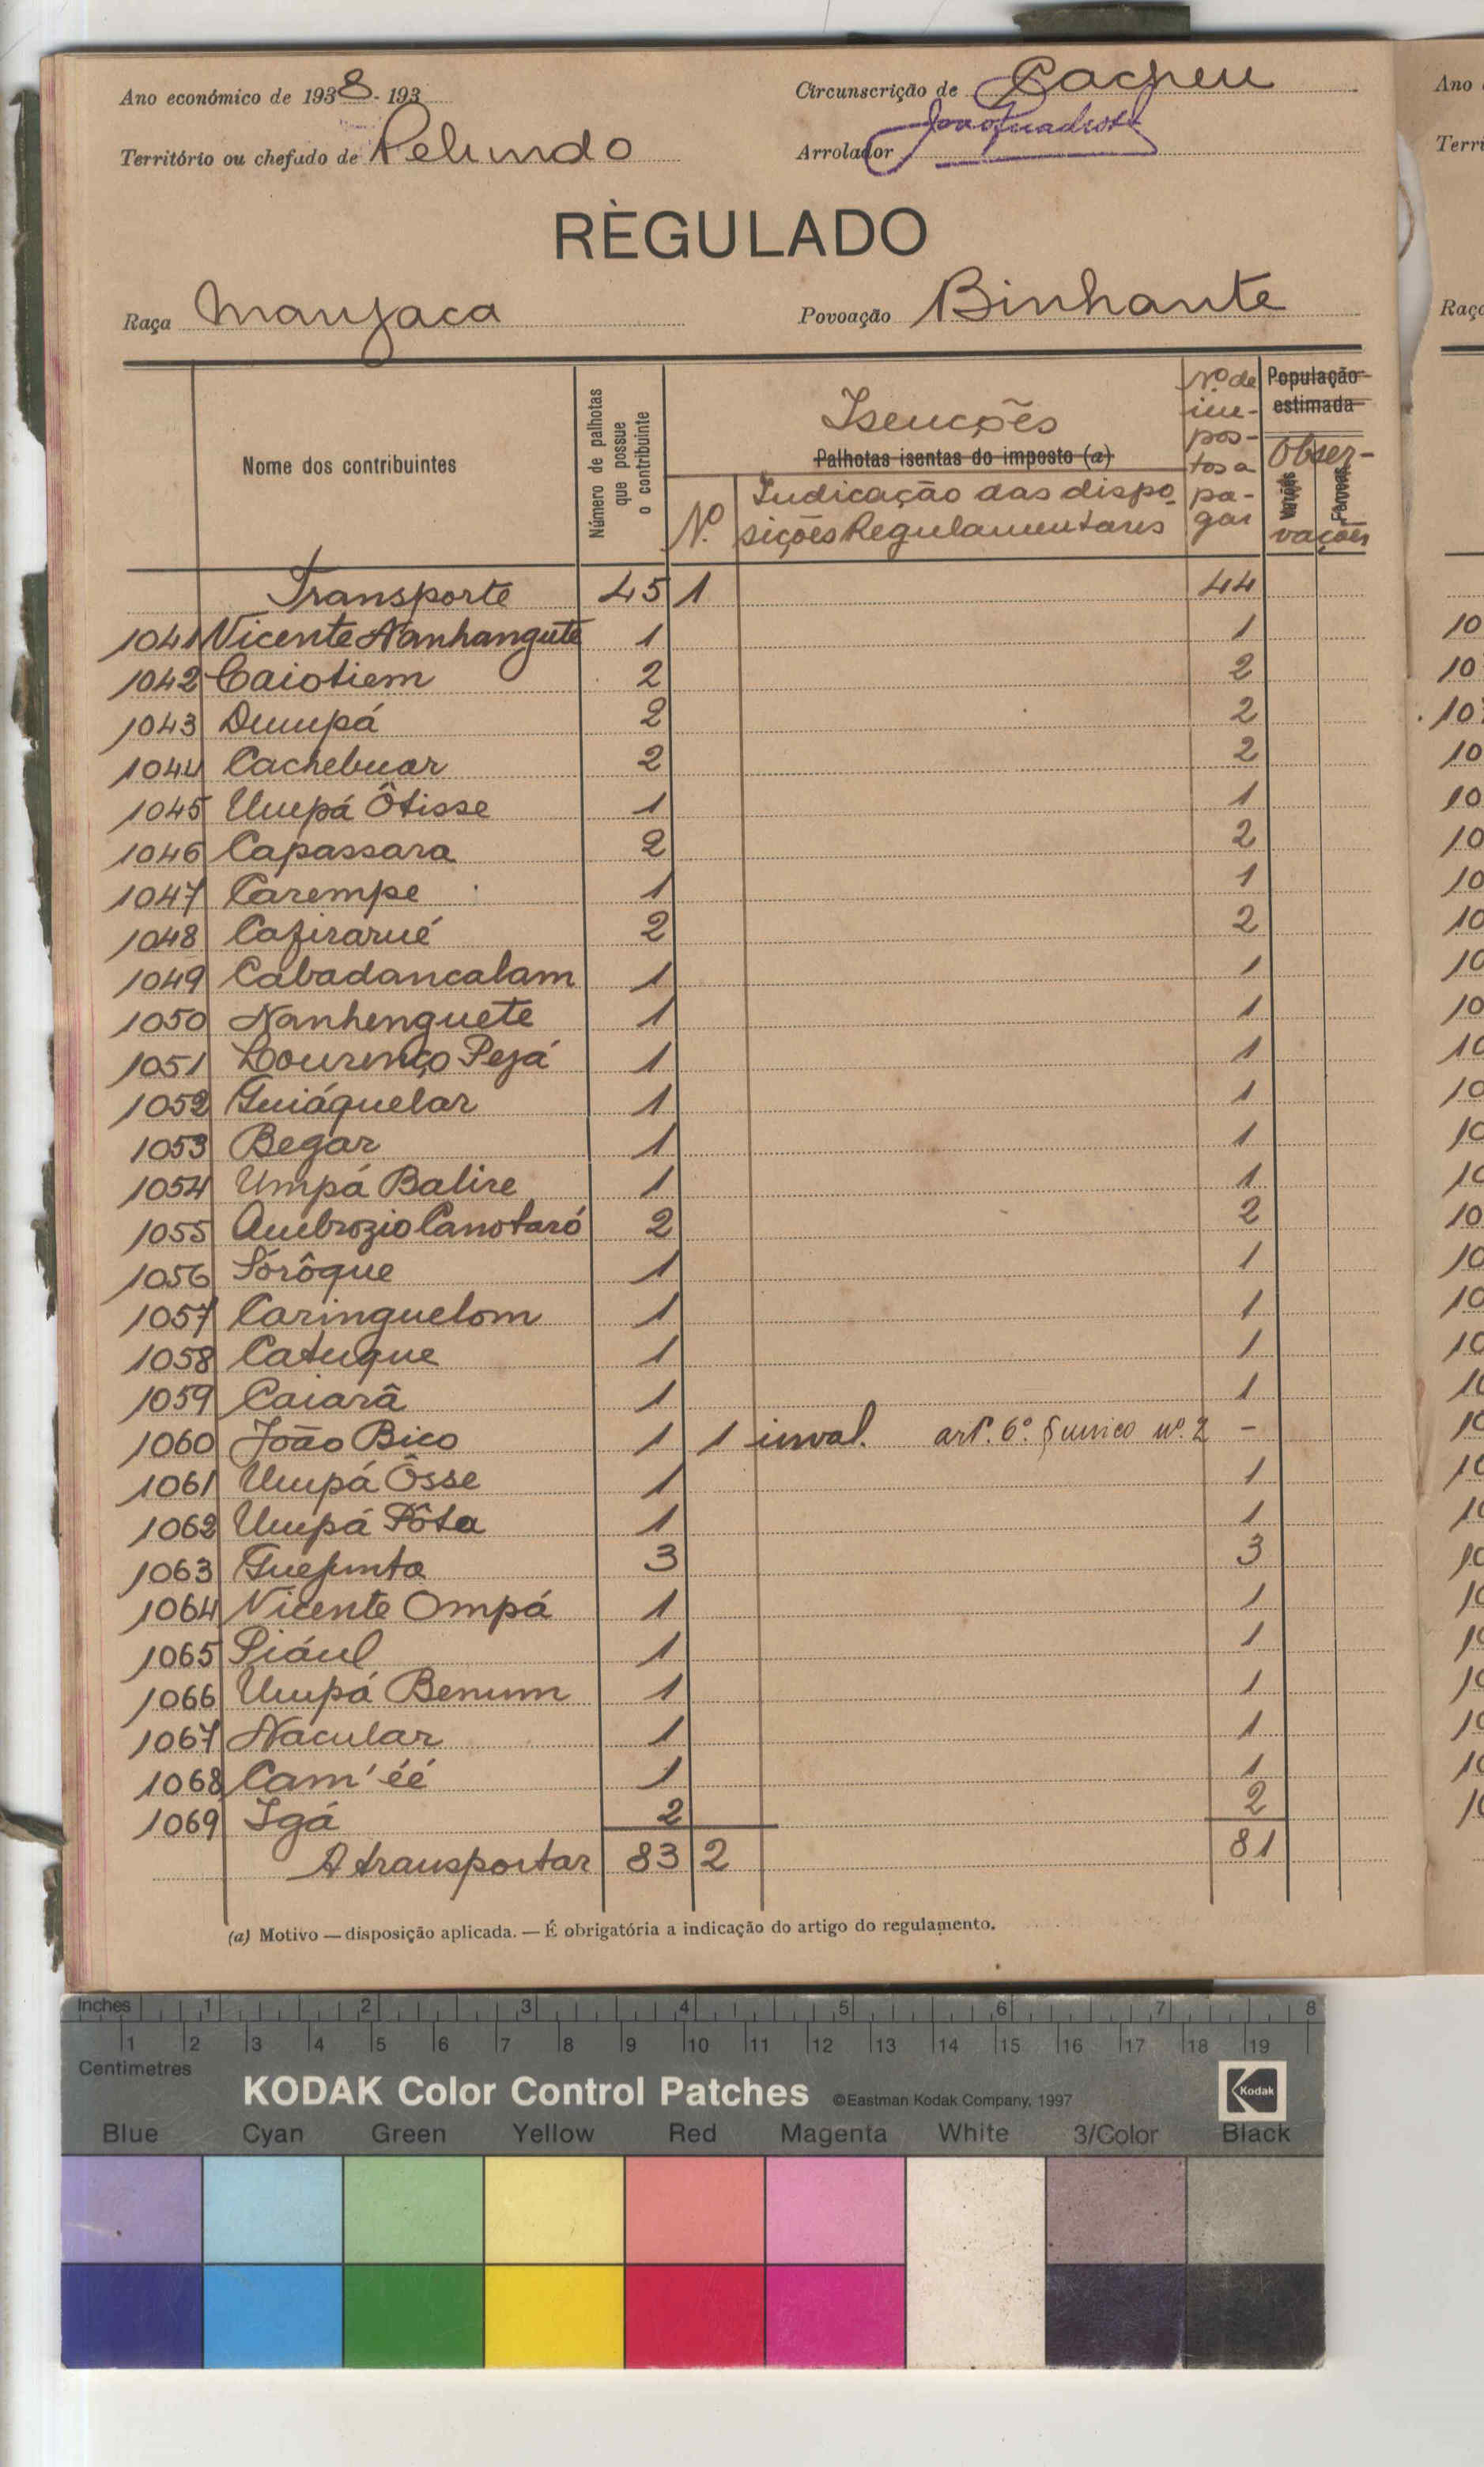 Ano económico de 1938-193
Circunscrição de Cacheu
Território ou chefado de Pelundo
Arrolador
RÈGULADO
Raça Manjaca
Povoação Binhante
Nome dos contribuintes
Número de palhotas que possue o contribuinte
Isenções
Palhotas isentas do imposto (a)
Nº
Indicação das dispo-
sições Regulamentares
Nº de im-pos-tos a pa-gar
População estimada
Obser-vações
Varões
Fêmeas
Transporte 45 1 44
1041 Vicente Nanhangute 1 1
1042 Caiotiem 2 2
1043 Dumpá 2 2
1044 Cachebuar 2 2
1045 Umpá Ôtisse 1 1
1046 Capassara 2 2
1047 Carempe 1 1
1048 Cafirarué 2 2
1049 Cabadancalam 1 1
1050 Nanhenguete 1 1
1051 Lourenço Pejá 1 1
1052 Guiáquelar 1 1
1053 Begar 1 1
1054 Umpá Balire 1 1
1055 Ambrozio Canotaró 2 2
1056 Sórôque 1 1
1057 Caringuelom 1 1
1058 Catuque 1 1
1059 Caiarâ 1 1
1060 João Bico 1 1 inval. artº. 6º. § unico nº. 2 -
1061 Umpá Ôsse 1 1
1062 Umpá Pôta 1 1
1063 Guejunta 3 3
1064 Vicente Ompá 1 1
1065 Piául 1 1
1066 Umpá Benum 1 1
1067 Nacular 1 1
1068 Cam' éé 1 1
1069 Igá 2 2
A transportar 83 2 81
(a) Motivo — disposição aplicada. — É obrigatória a indicação do artigo do regulamento.
Ano
Terri
Raça
Inches 1 2 3 4 5 6 7 8
1 2 3 4 5 6 7 8 9 10 11 12 13 14 15 16 17 18 19
Centimetres
KODAK Color Control Patches ©Eastman Kodak Company, 1997 Kodak
Blue Cyan Green Yellow Red Magenta White 3/Color Black